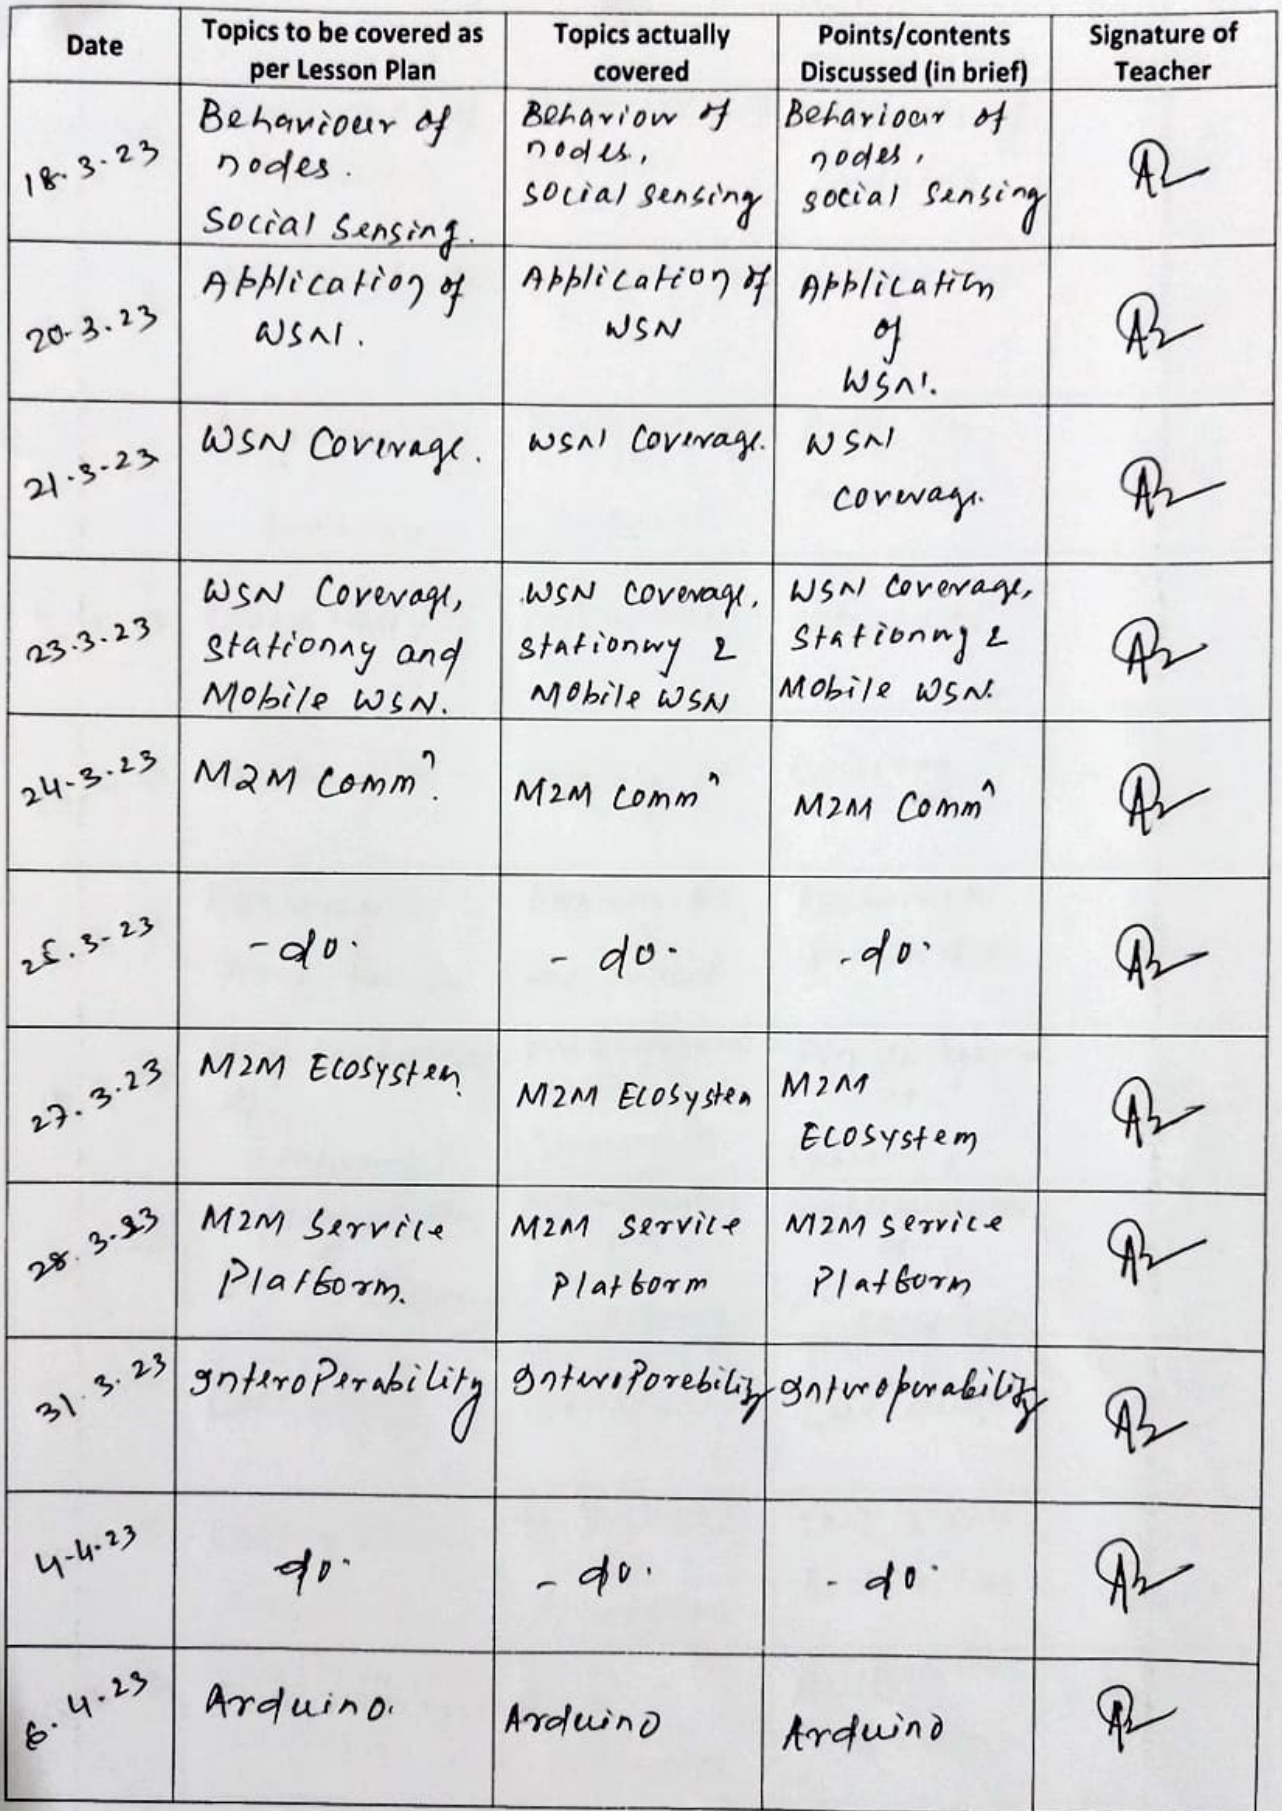 Date
Topics to be covered as
per Lesson Plan
Topics actually
covered
Points/contents
Discussed (in brief)
Signature of
Teacher
18.3.23
Behaviour of
nodes.
Social Sensing.
Behaviour of
nodes,
social sensing
Behaviour of
nodes,
social sensing
20.3.23
Application of
WSN.
Application of
WSN
Application
of
WSN.
21.3.23
WSN Coverage.
WSN Coverage.
WSN
coverage.
23.3.23
WSN Coverage,
Stationary and
Mobile WSN.
WSN coverage,
stationary &
Mobile WSN
WSN coverage,
Stationary &
Mobile WSN.
24.3.23
M2M Commⁿ.
M2M commⁿ
M2M Commⁿ
25.3.23
- do.
- do.
- do.
27.3.23
M2M Ecosystem.
M2M Ecosystem
M2M
Ecosystem
28.3.23
M2M Service
Platform.
M2M service
Platform
M2M service
Platform
31.3.23
InteroPerability
InteroPorebility
Interoperability
4.4.23
do.
- do.
- do.
6.4.23
Arduino.
Arduino
Arduino